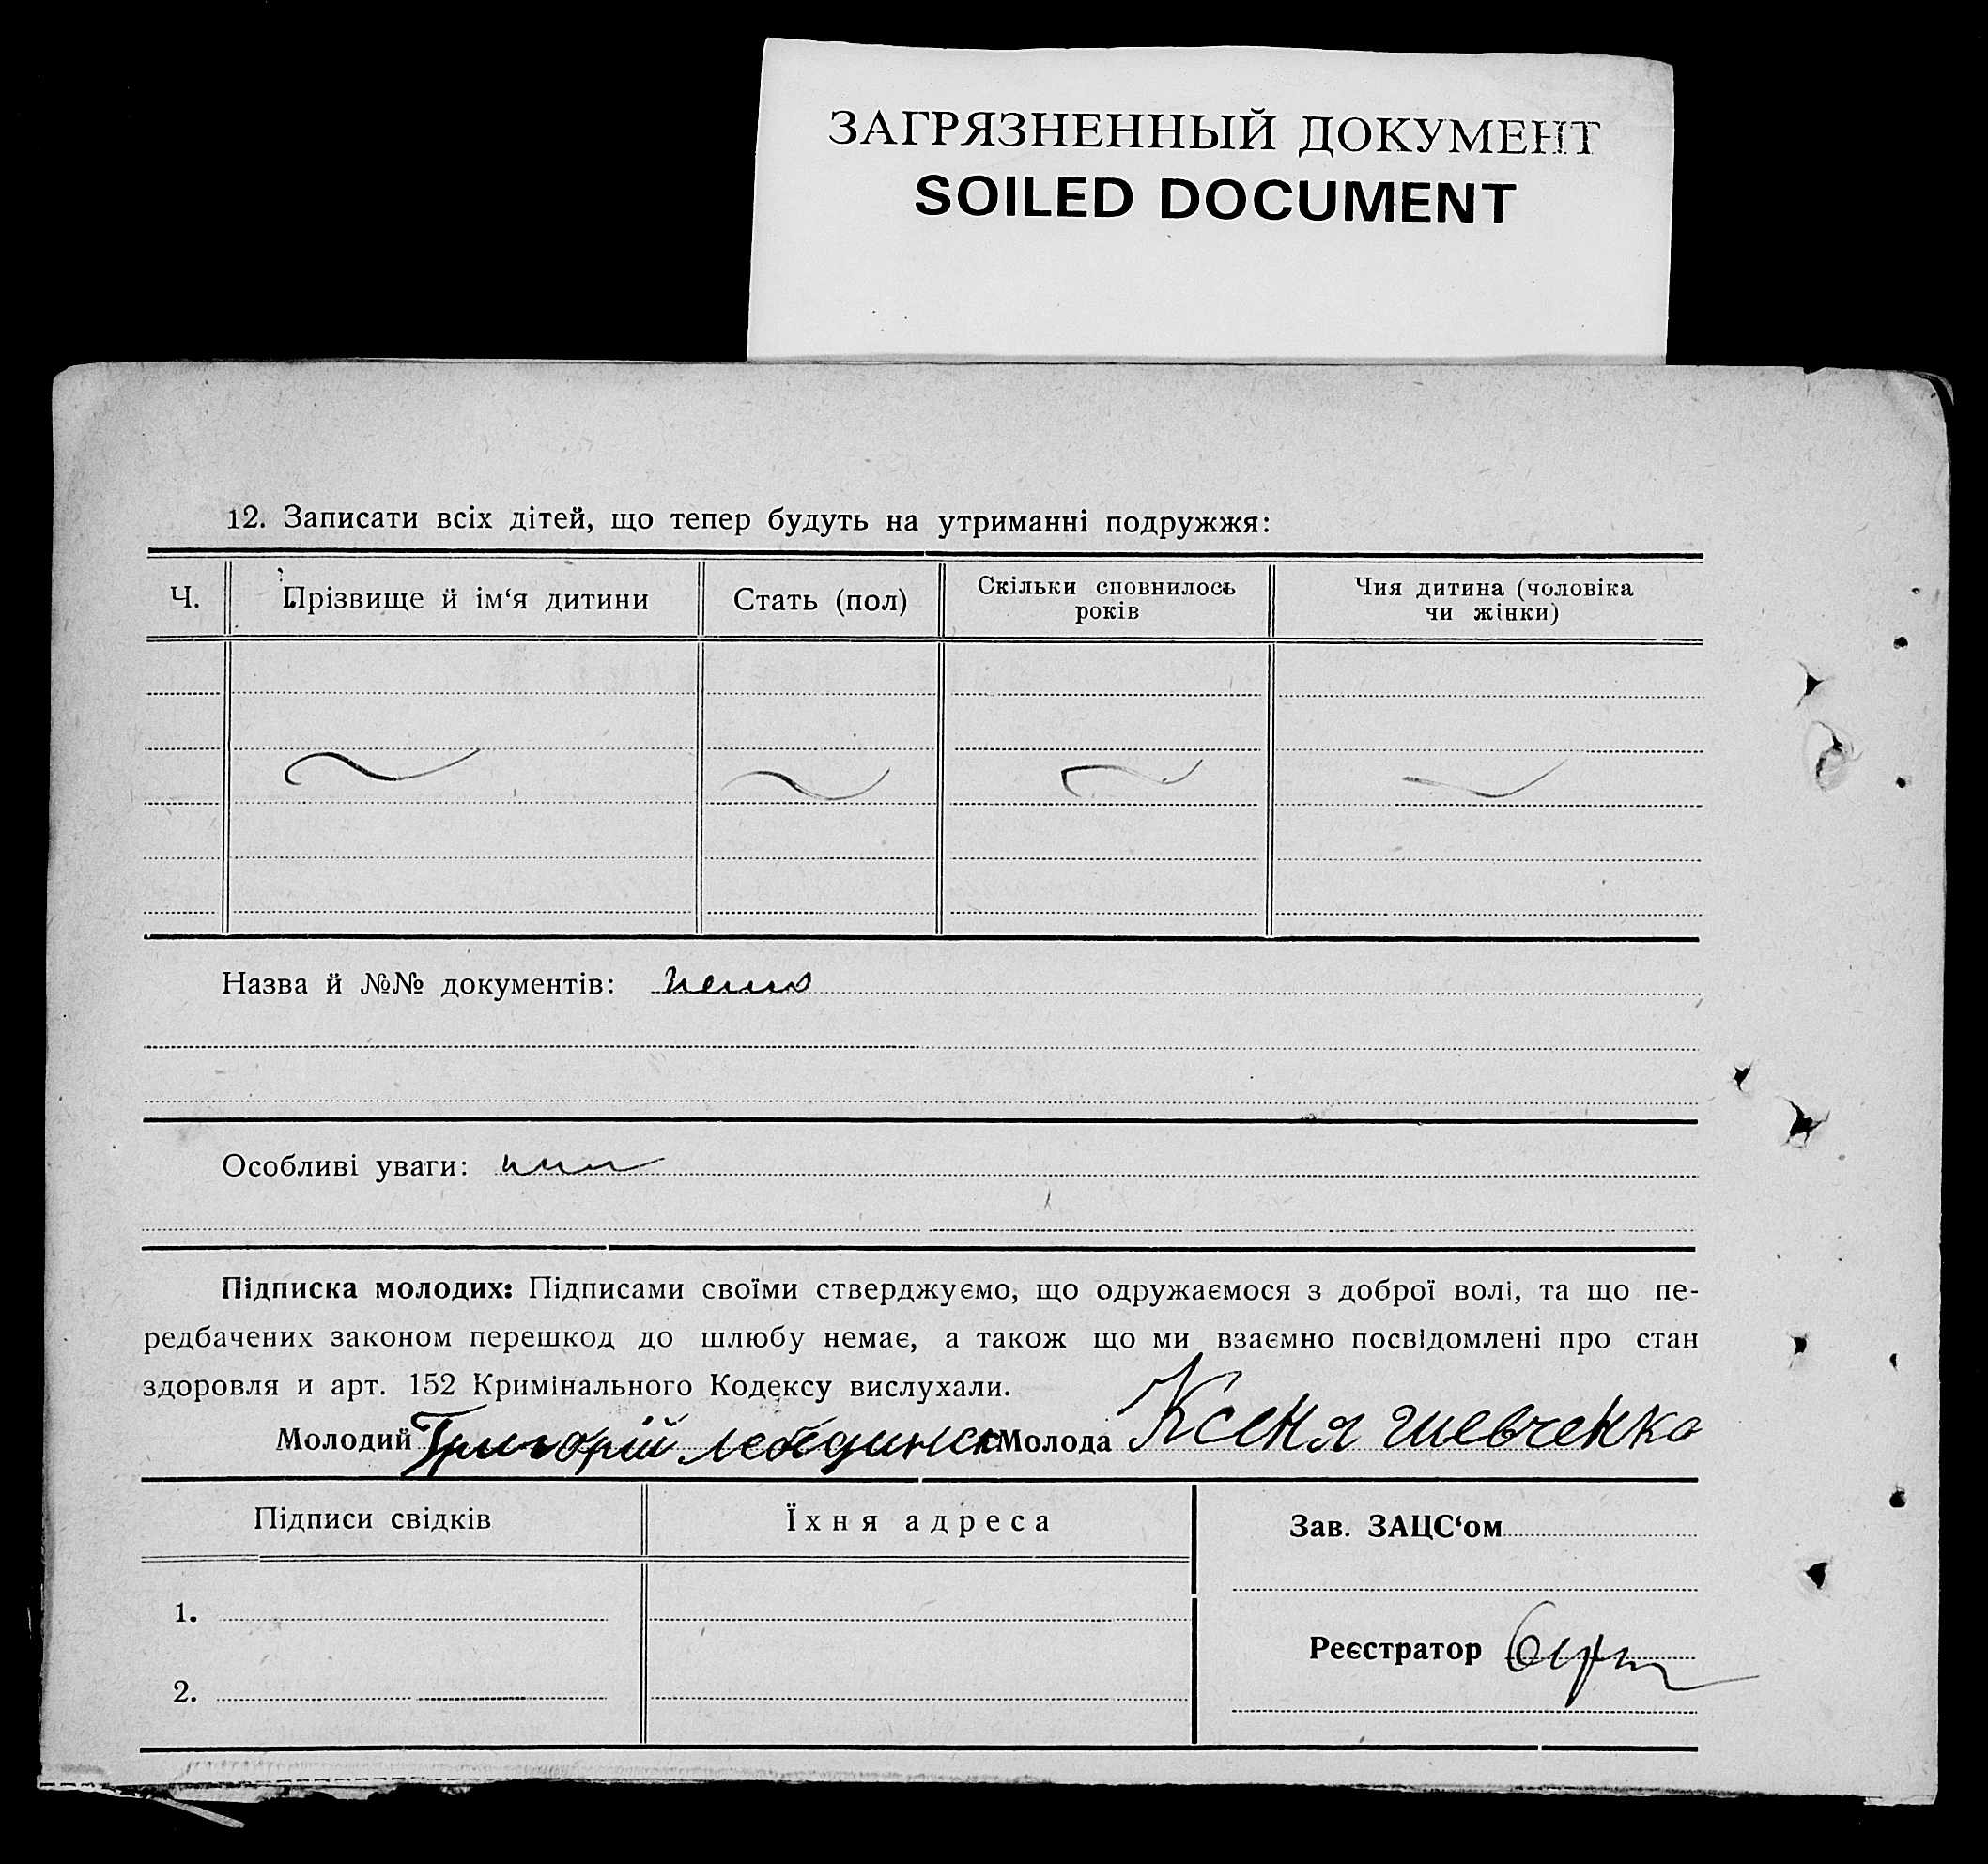 ЗАГРЯЗНЕННЫЙ ДОКУМЕНТ
SOILED DOCUMENT
12. Записати всіх дітей, що тепер будуть на утриманні подружжя:
Ч. Прізвище й ім‘я дитини Стать (пол) Скільки сповнилось років Чия дитина (чоловіка чи жінки)
Назва й №№ документів:
Особливі уваги:
Підписка молодих: Підписами своїми стверджуємо, що одружаємося з доброї волі, та що пе-
редбачених законом перешкод до шлюбу немає, а також що ми взаємно посвідомлені про стан
здоровля и арт. 152 Кримінального Кодексу вислухали.
Молодий Григорій Лебединск Молода Ксеня Шевченко
Підписи свідків Їхня адреса Зав. ЗАЦС‘ом
1.
Реєстратор
2.